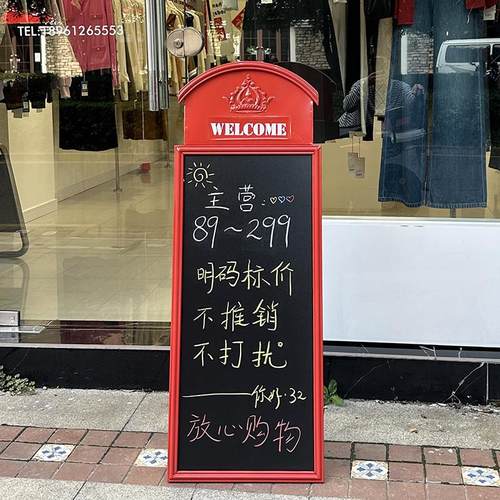 TEL:18961265553
WELCOME
主营:
89~299
明码标价
不推销
不打扰
——你好·32
放心购物